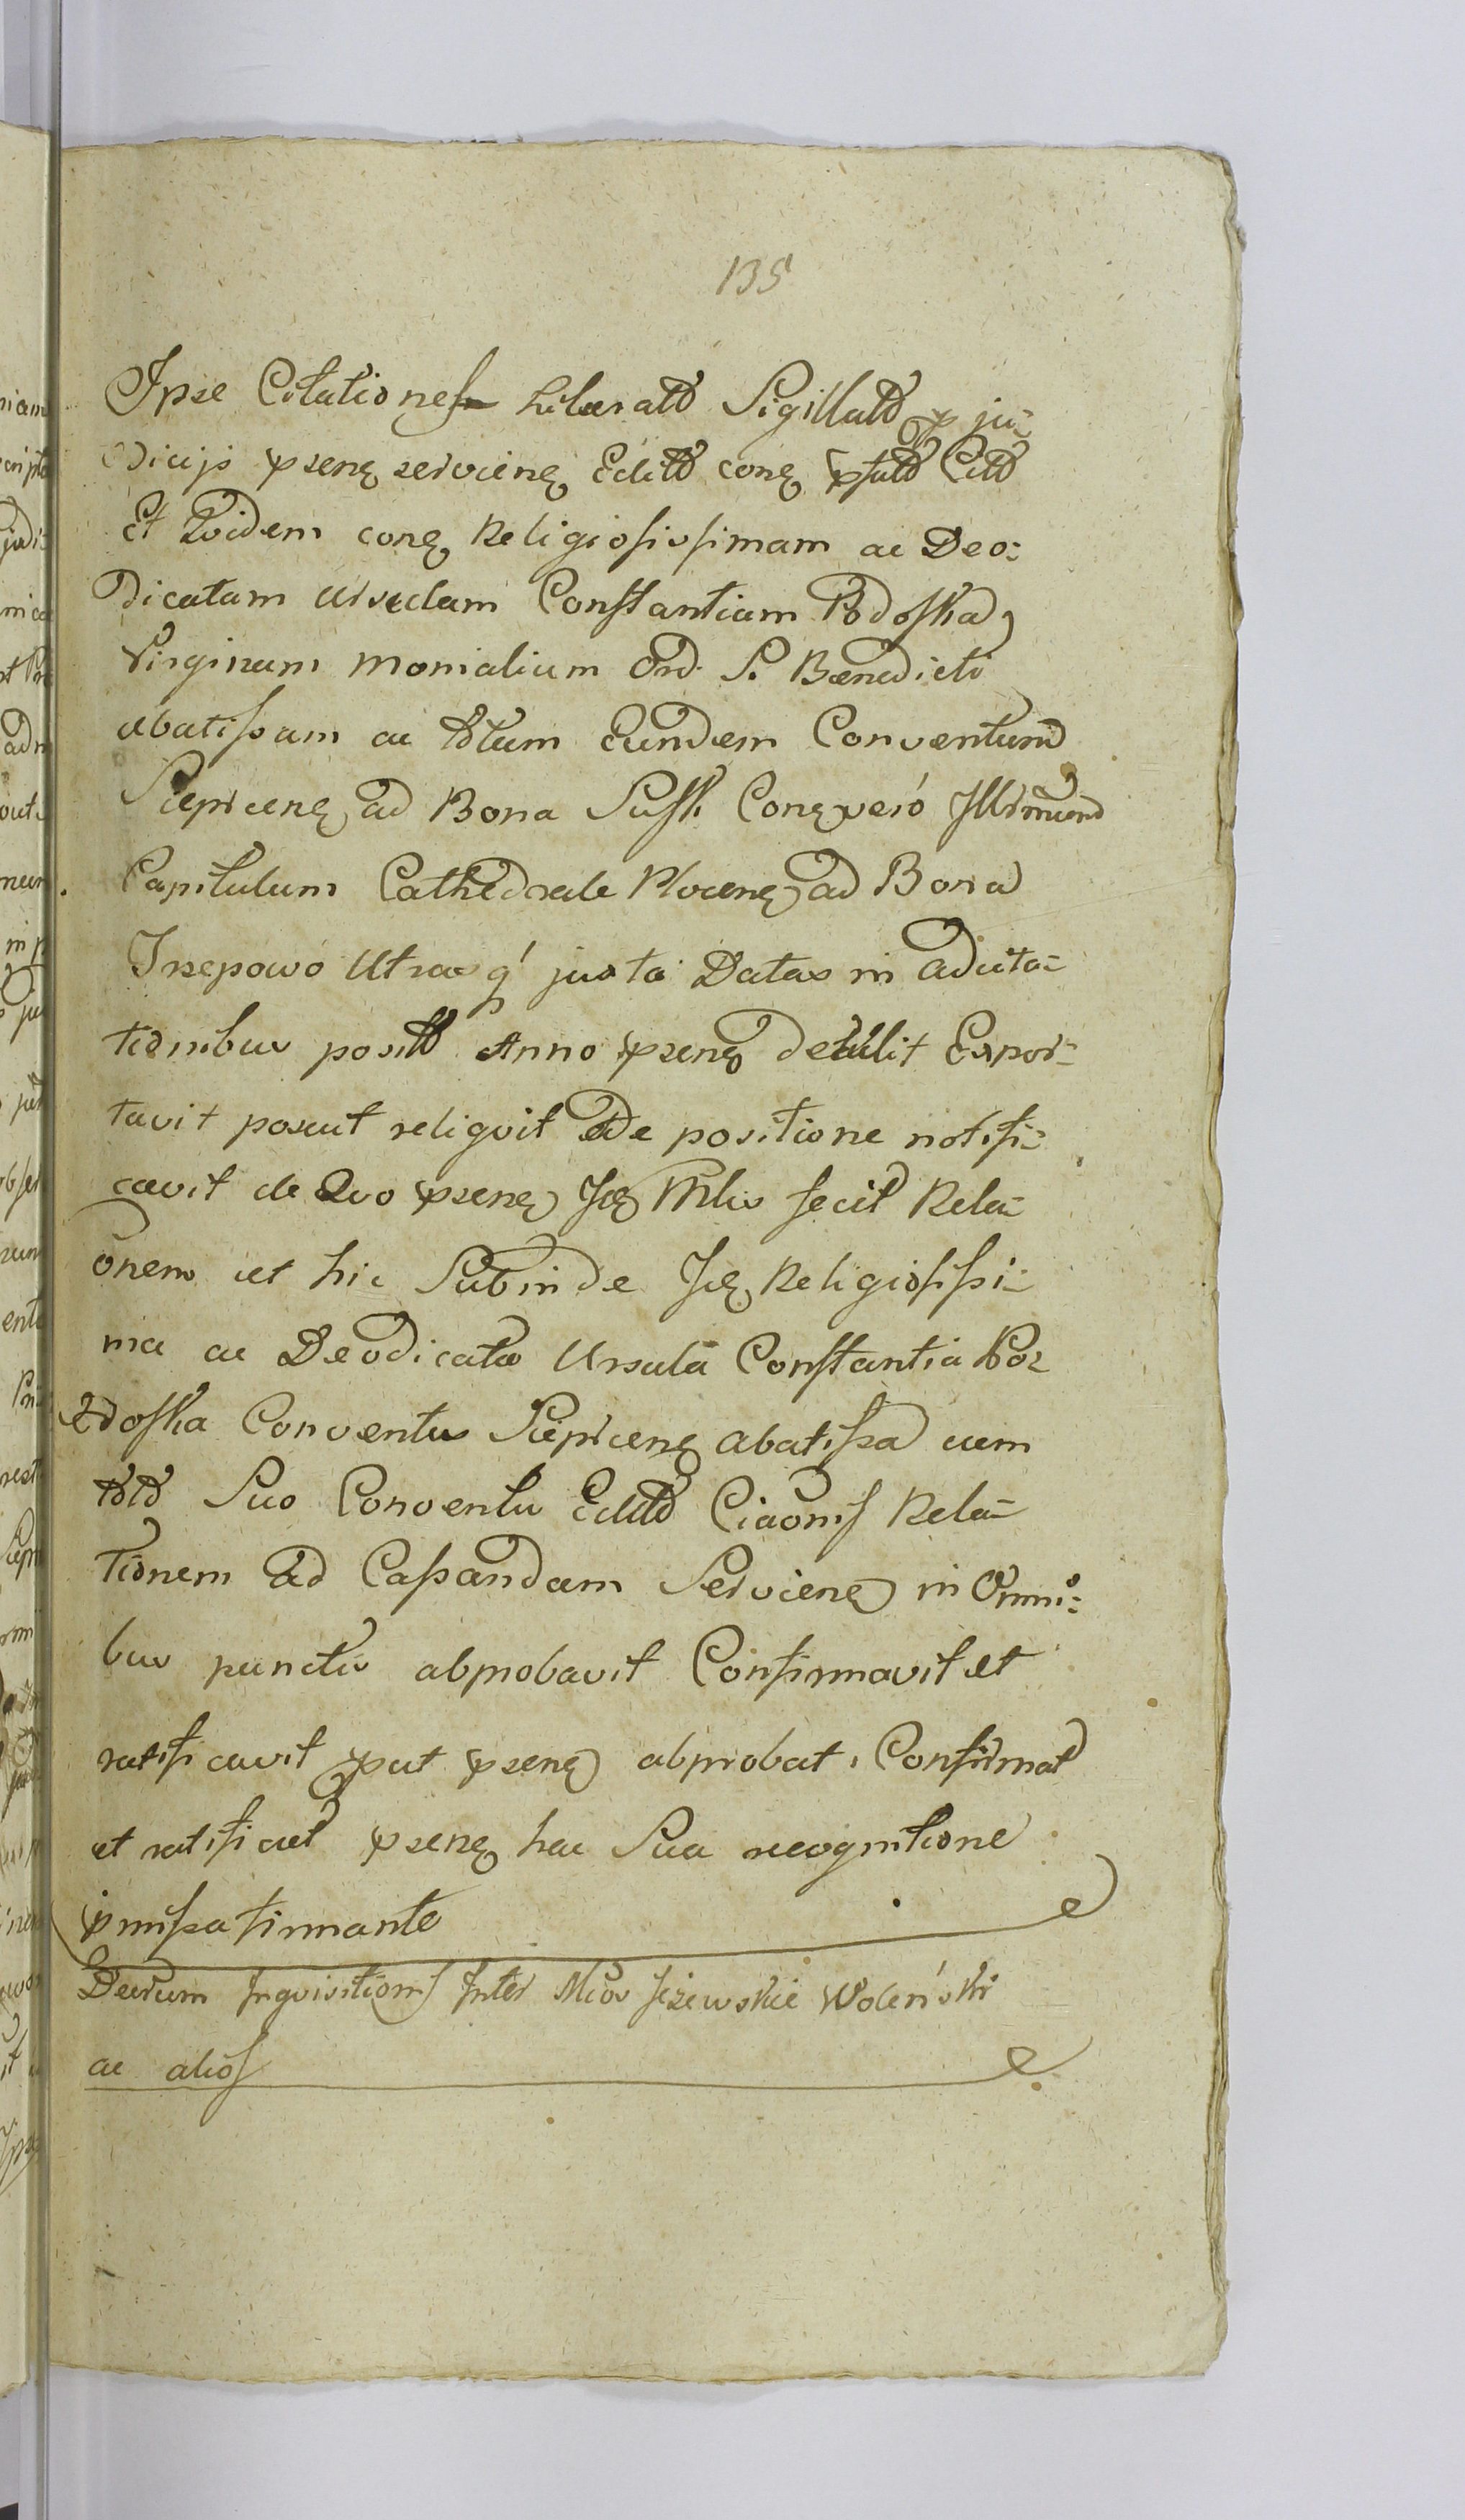 135
Ipse Citationes literatt Sigillatt p ju-
dicijs psenę servienę Editt conę pfatt Citt
Et Qvidem conę Religiosissimam ac Deo-
dicatam Ursulam Constantiam Podoska
Virginum Monialium Ord. S. Bænedicti
abatissam ac totum Eundem Conventum
Sieprcenę ad Bona Conę veró Illrmum
Capitulum Cathedrale Plocenę ad Bona
Trzepowo Utrasq juxta Datas in adcita-
tionibus positt Anno psenę detulit Expor-
tavit posuit reliqvit Ede positione notifi-
cavit de Qvo psenę Ję Mlis fecit Rela-
onem et hic Subinde Ję Religiosissi-
ma ac Deodicata Ursula Constantia Po-
doska Conventus Sieprcenę abatissa cum
toto Suo Conventu Editt Ciaonis Rela-
tionem ad Cassandam Servienę in Omni-
bus punctis abprobavit Confirmavit et
ratificavit put psenę abprobat, Confirmat
et ratificat psenę hac Sua recognitione
pmissa firmante
Decrum Inqvisitionis Inter Mcos Jeżewskie Woleński
ac alios